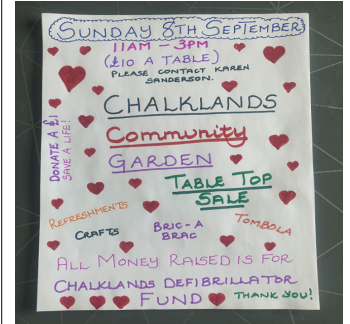 SUNDAY 8TH SEPTEMBER
11AM - 3PM
(£10 A TABLE)
PLEASE CONTACT KAREN
SANDERSON.
CHALKLANDS
COMMUNITY
GARDEN
TABLE TOP
SALE
DONATE A £1
SAVE A LIFE!
REFRESHMENTS
CRAFTS
BRIC-A
BRAC
TOMBOLA
ALL MONEY RAISED IS FOR
CHALKLANDS DEFIBRILLATOR
FUND
THANK YOU!